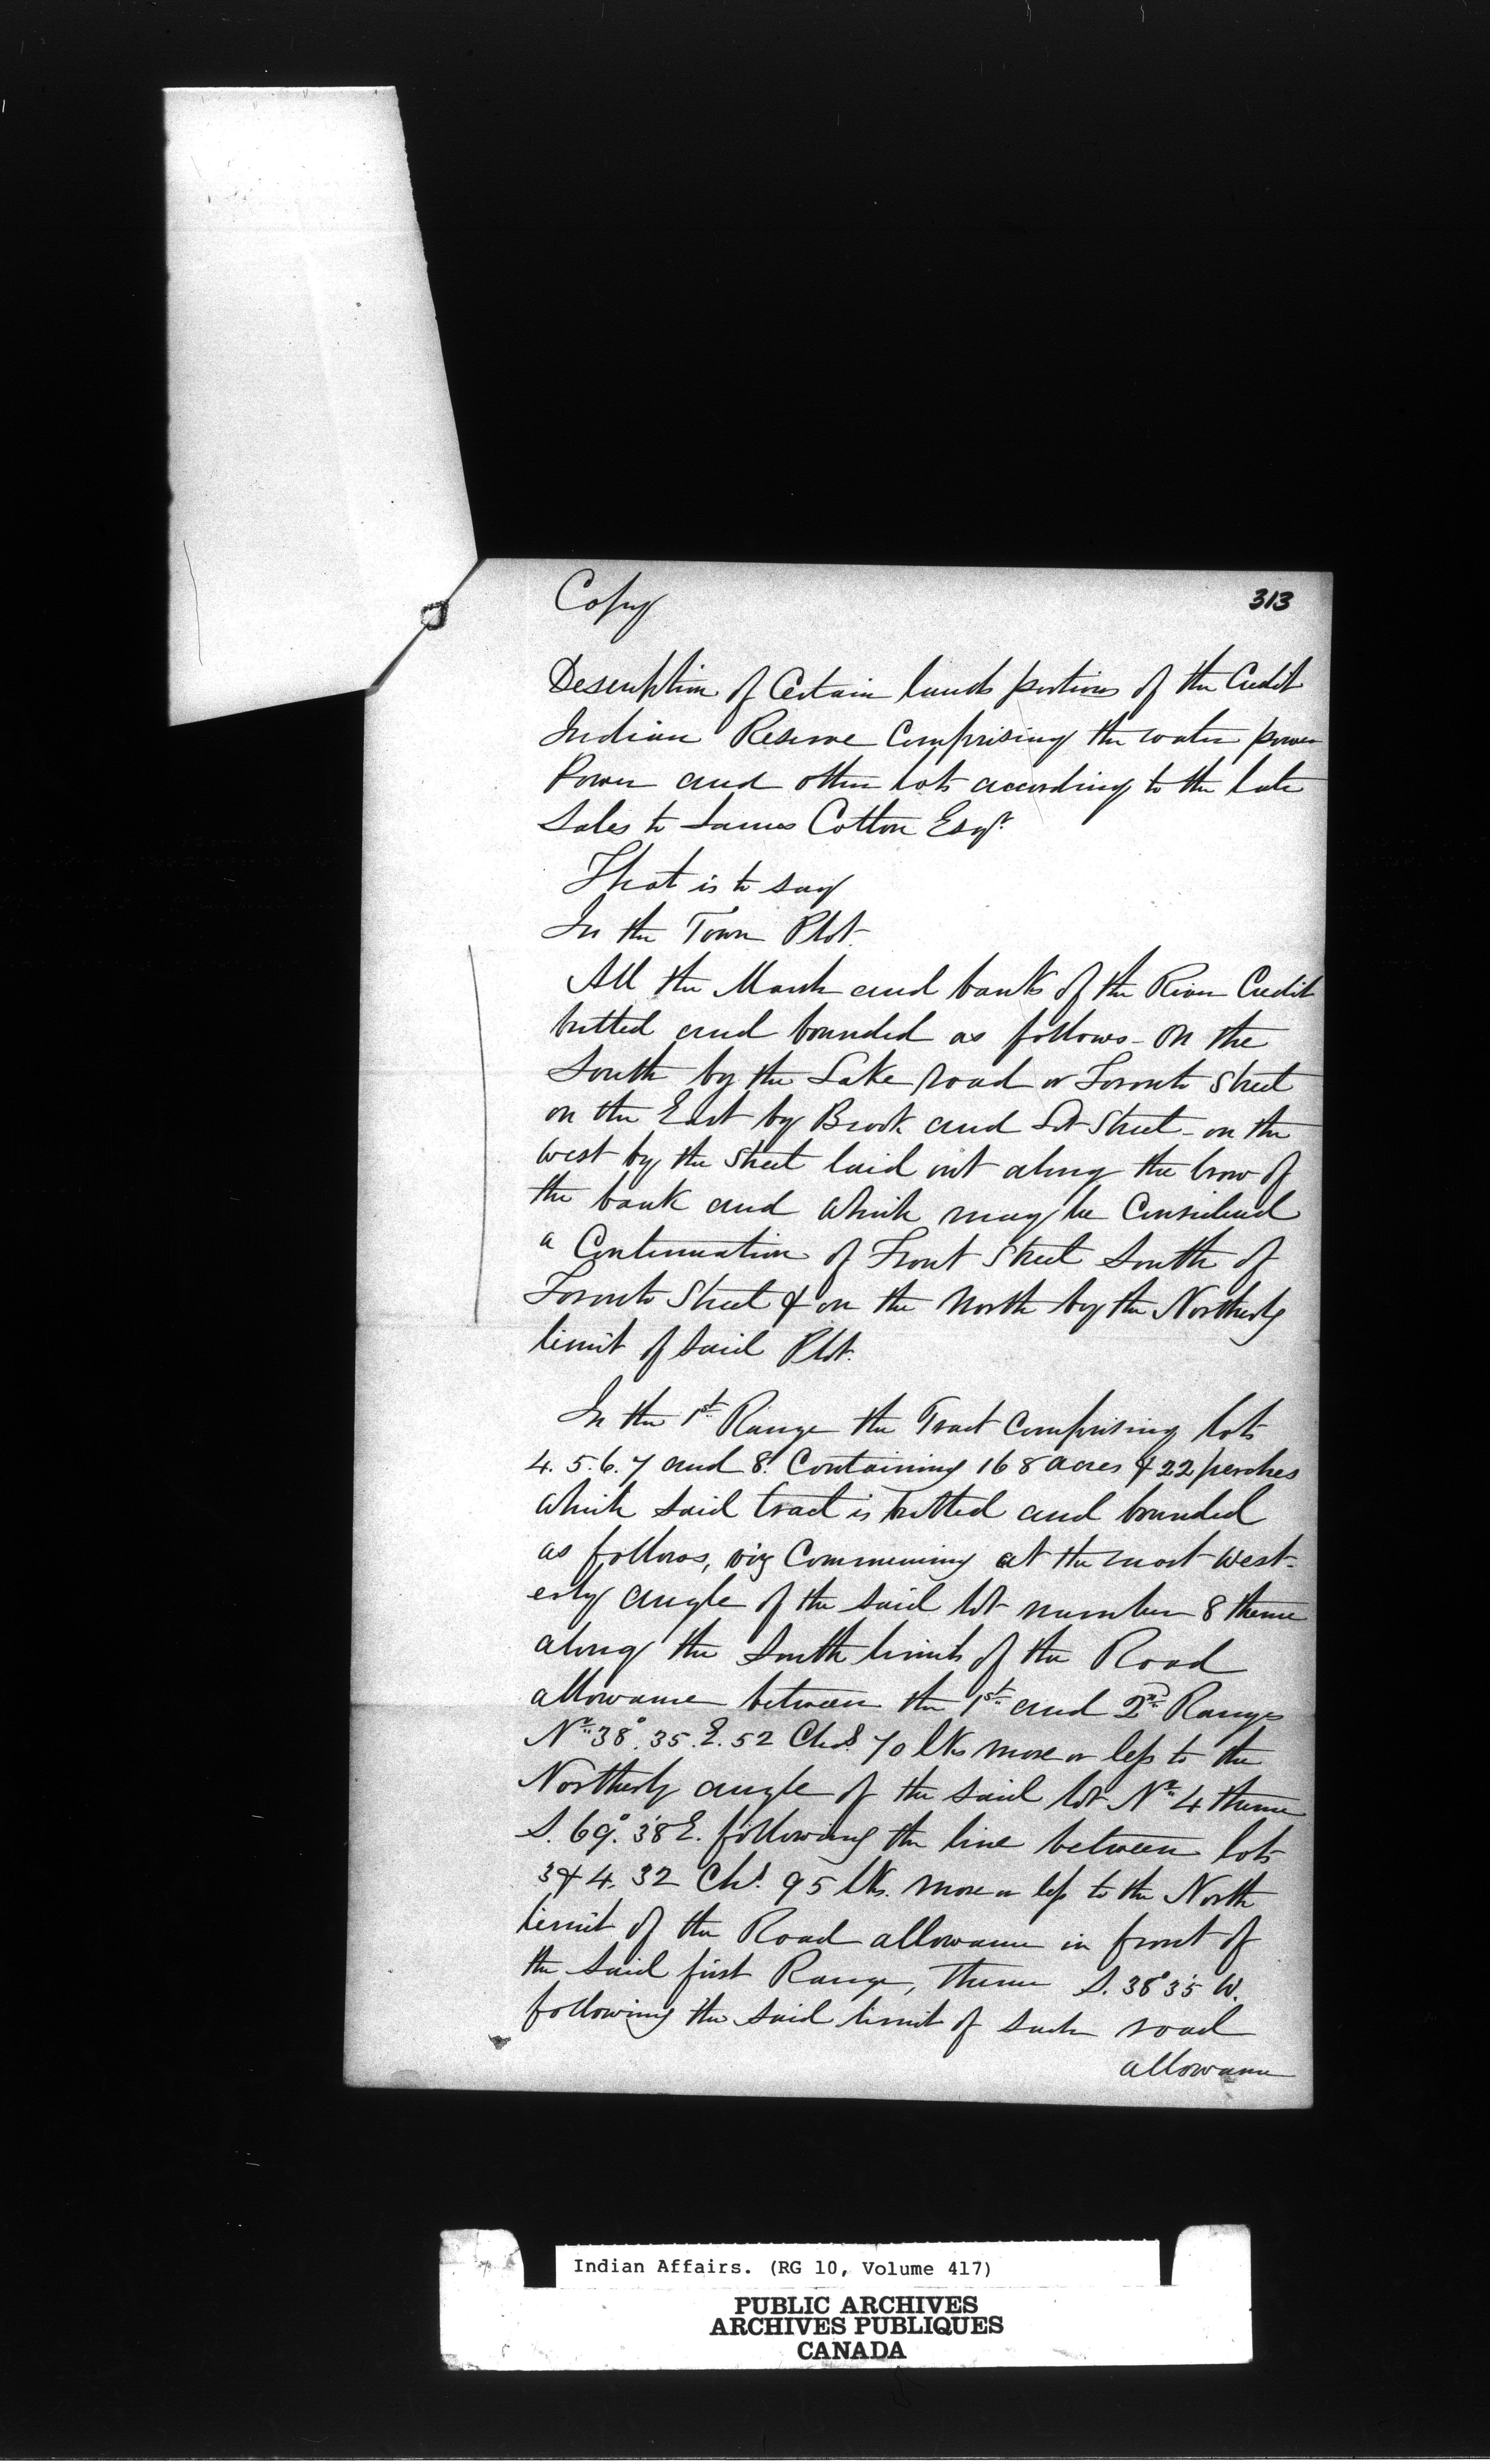 Copy
313
Description of Certain lands portions of the Credit
Indian Reserve Comprising the water power
Power and other lots according to the late
Sales to James Cotton Esqr.
That is to say
In the Town Plot.
All the Marsh and banks of the River Credit
butted and bounded as follows - On the
South by the Lake road or Toronto Street
on the East by Brook and Lot Street - on the
west by the Street laid out along the brow of
the bank and which may be Considered
a Continuation of Front Street South of
Toronto Street & on the North by the Northerly
limit of said Plot.
In the 1st Range the Tract Comprising lots
4. 5. 6. 7 and 8. Containing 168 acres & 22 perches
which said tract is butted and bounded
as follows, viz Commencing at the most West-
erly angle of the said lot number 8 thence
along the South limits of the Road
allowance between the 1st and 2nd Ranges
No 38°. 35. E. 52 Chs. 70 lks more or less to the
Northerly angle of the said lot No 4 thence
S. 69°. 38 E. following the line between lots
3 & 4. 32 Chs. 95 lks. more or less to the North
limit of the Road allowance in front of
the said first Range, Thence S. 38° 35 W.
following the said limit of such road
allowance
Indian Affairs. (RG 10, Volume 417)
PUBLIC ARCHIVES
ARCHIVES PUBLIQUES
CANADA